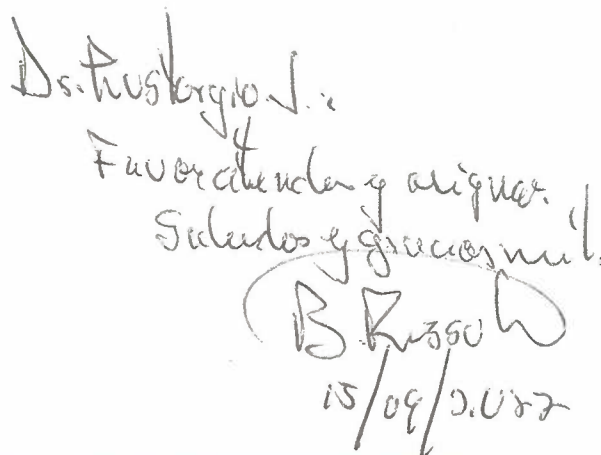 Dr. Pustorgio J.:
Favor atender y asignar.
Saludos y gracias mil.
B. Russo
15/09/2.022